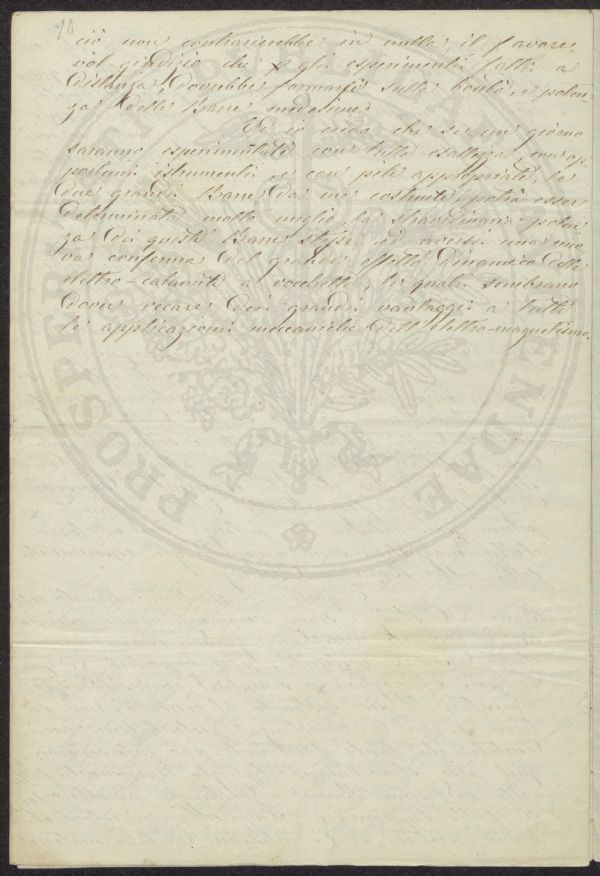 70
ciò non contrarierebbe in nulla, il favore-
vol giudizio che p gli esperimenti fatti a
distanza, dovrebbe formarsi sulla bontà, e poten-
za delle Barre medesime.
Ed io credo che se un giorno
saranno esperimentate con tutta esattezza, con op-
portuni istrumenti, e con pile appropriate, le
due grandi Barre da me costruite, potrà esser
determinata molto meglio la straordinaria poten-
za di queste Barre stesse, ed aversi una nuo-
va conferma del grande effetto dinamico delle
elettro-calamite a rocchetto, le quali sembrano
dover recare dei grandi vantaggi a tutte
le applicazioni meccaniche dell'elettro-magnetismo.
PROSPERITATI PUBLICAE AUGENDAE